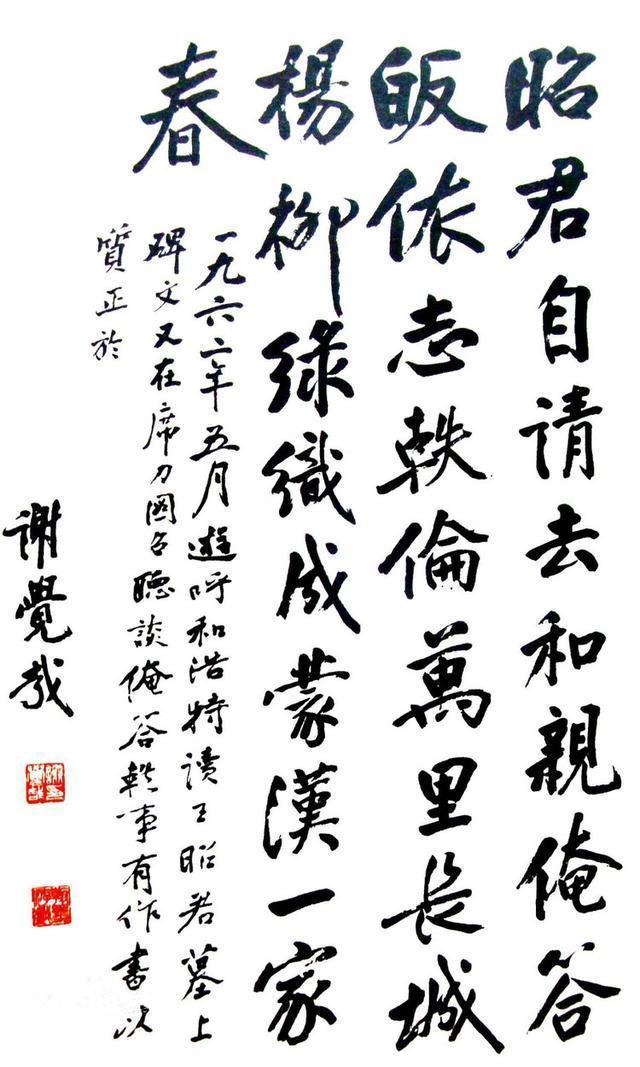 昭君自请去和親俺答
皈依志軼倫萬里長城
楊柳緑織成蒙漢一家
春
一九六二年五月遊呼和浩特读王昭君墓上
碑文又在席力圖召聽談俺答軼事有作書以
質正於
謝覺哉